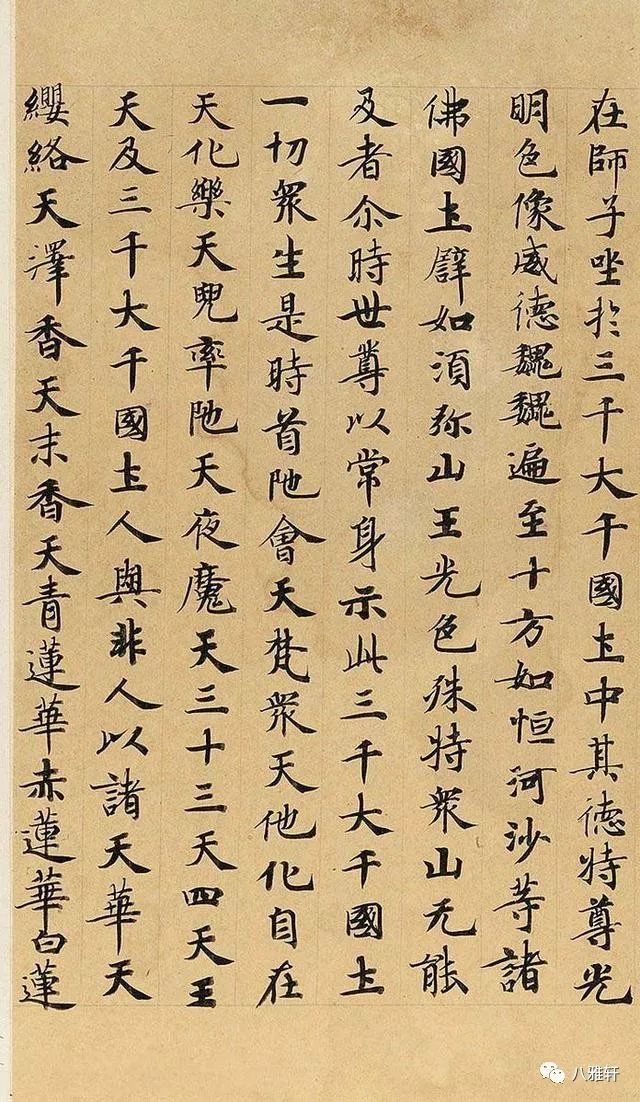 在師子㘴扵三千大千國圡中其德特尊光
明色像威德巍巍遍至十方如恒河沙等諸
佛國圡譬如湏弥山王光色殊特衆山无能
及者尒時世尊以常身示此三千大千國圡
一切衆生是時首陁會天梵衆天他化自在
天化樂天兜率陁天夜魔天三十三天四天王
天及三千大千國圡人與非人以諸天華天
纓絡天澤香天末香天青蓮華赤蓮華白蓮
八雅轩